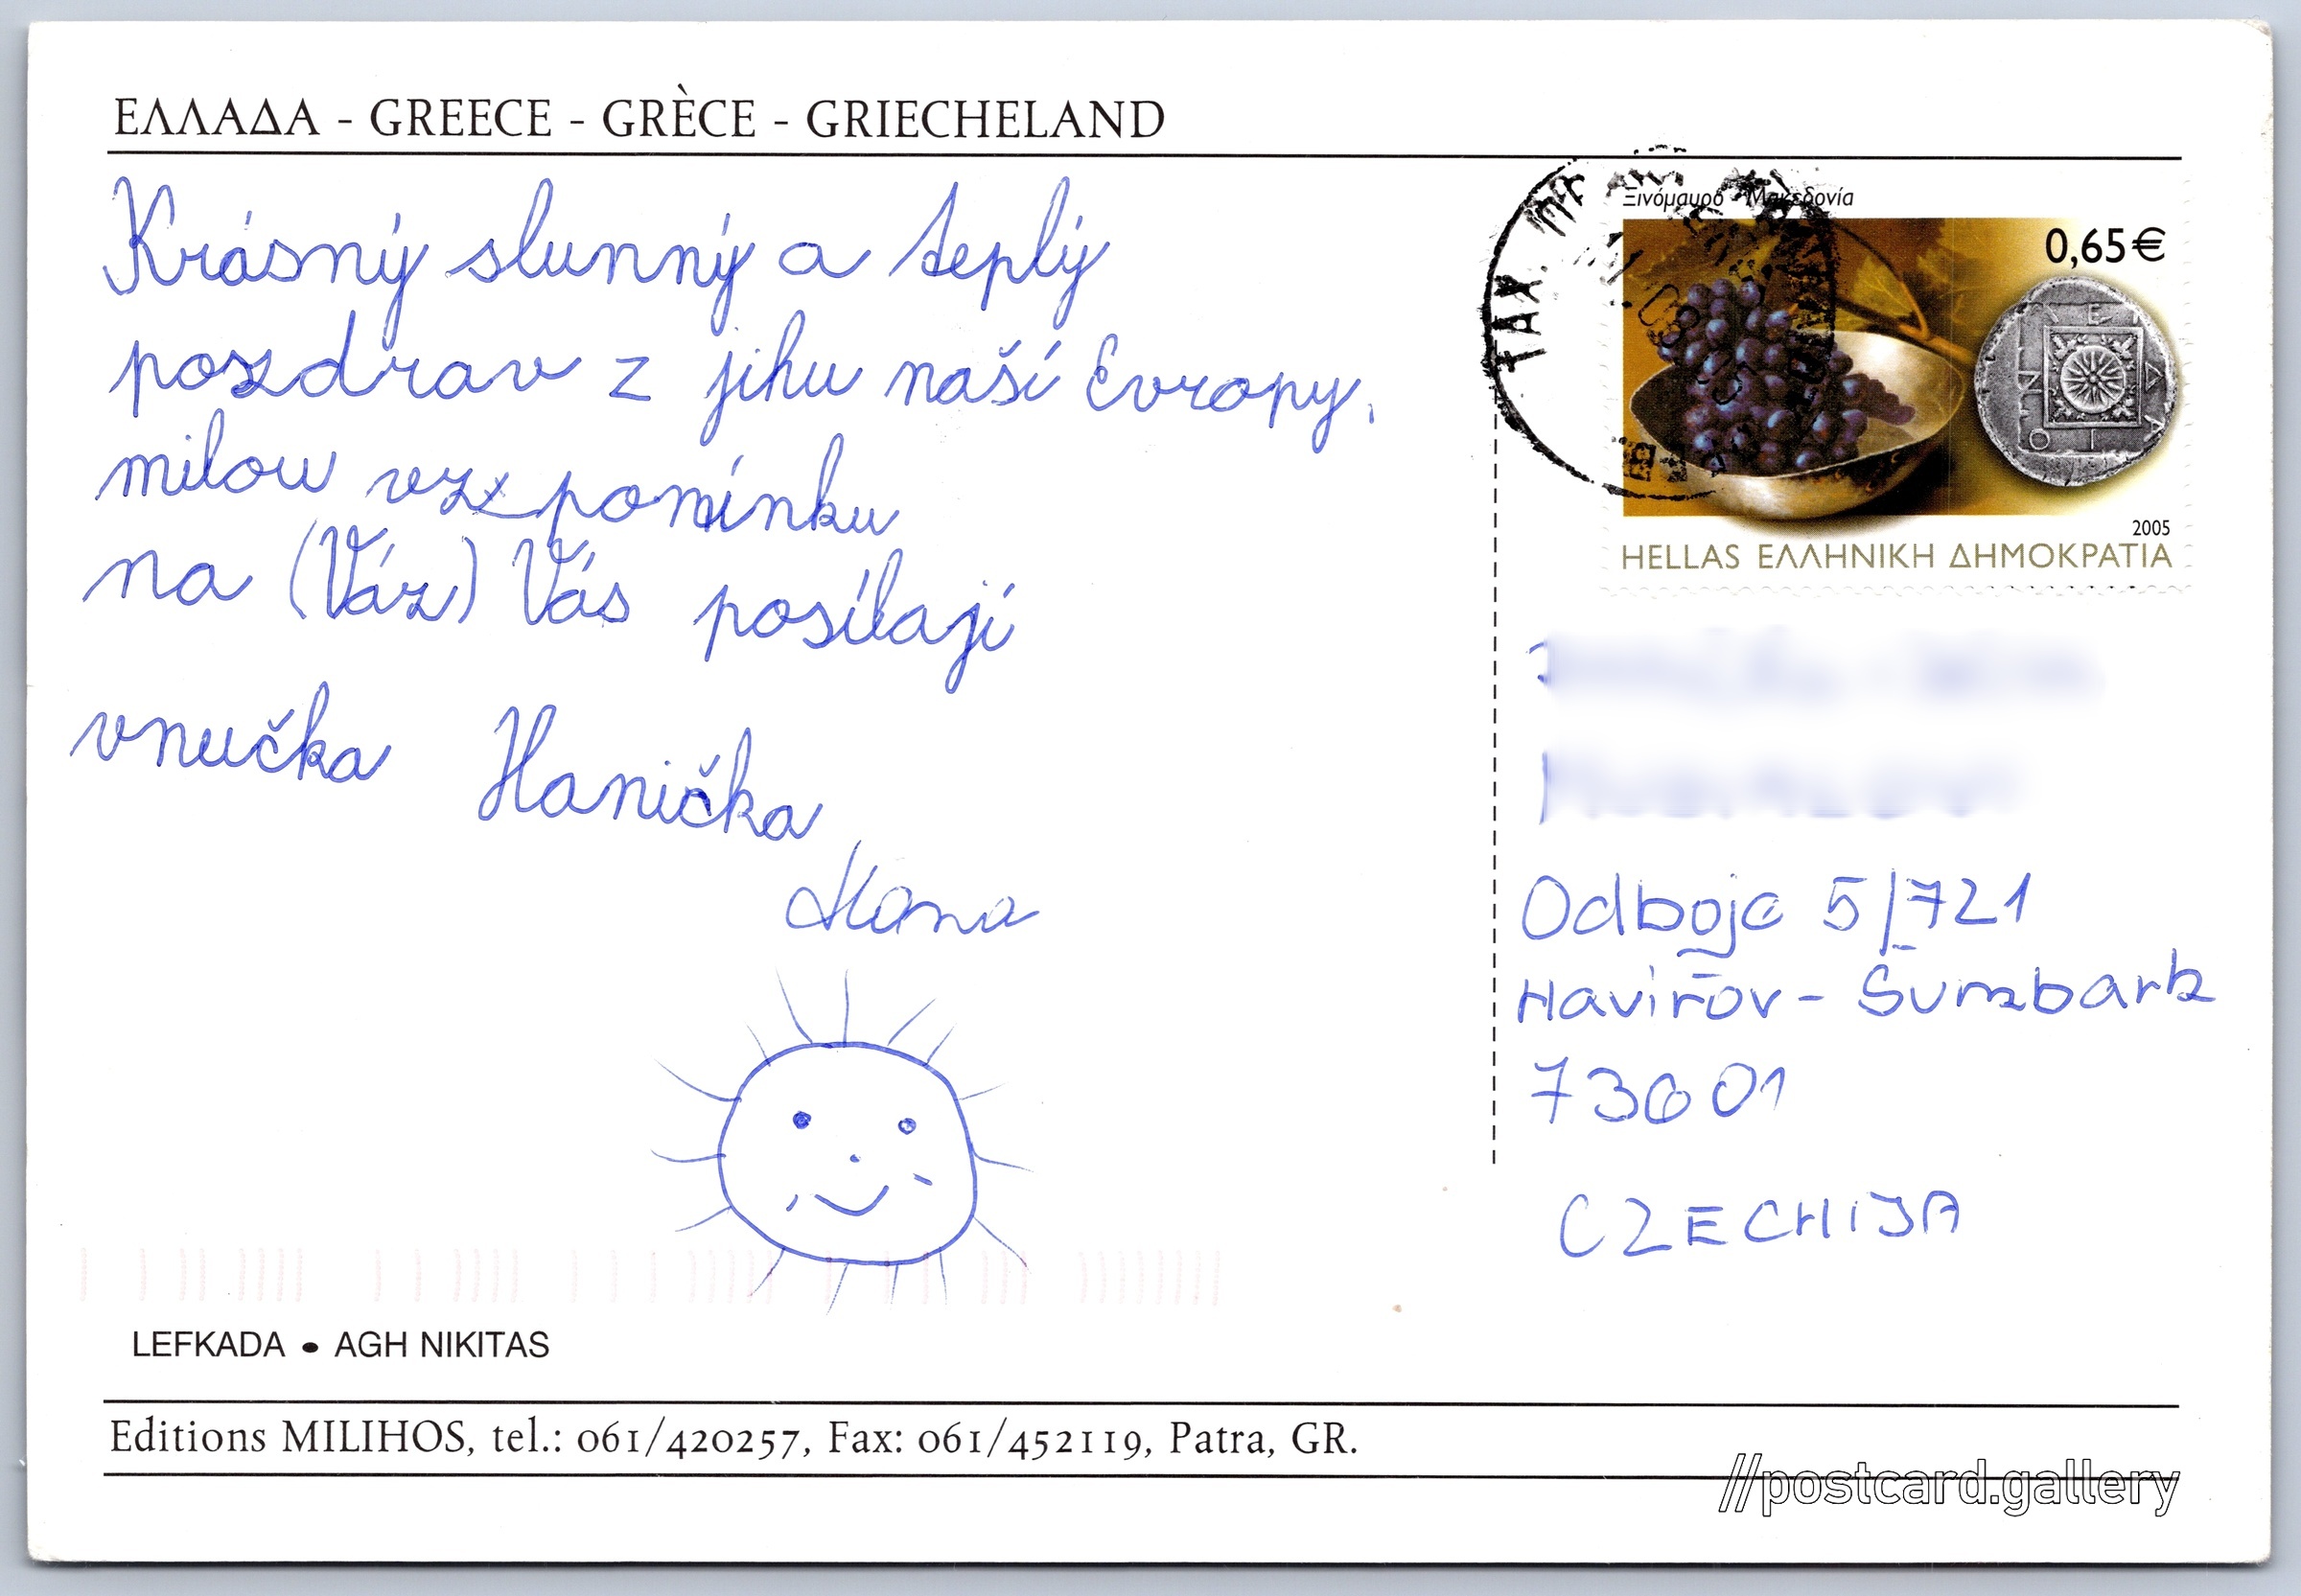 ΕΛΛΑΔΑ - GREECE - GRÈCE - GRIECHELAND
Krásný slunný a teplý
pozdrav z jihu naší Evropy,
milou vzpomínku
na (Váz) Vás posílají
vnučka Hanička
Hana
LEFKADA • AGH NIKITAS
Editions MILIHOS, tel.: 061/420257, Fax: 061/452119, Patra, GR.
ΤΑΧ.
Ξινόμαυρο - Μακεδονία
0,65€
2005
HELLAS ΕΛΛΗΝΙΚΗ ΔΗΜΟΚΡΑΤΙΑ
Odboje 5/721
Havířov - Šumbark
73601
CZECHIJA
//postcard.gallery